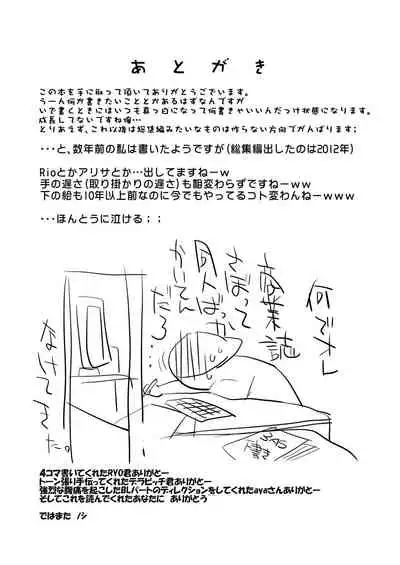 あとがき
この本を手に取って頂いてありがとうございます。
うーん何か書きたいこととかあるはずなんですが
いざ書くときにはいつも真っ白になって何書きゃいいんだっけ状態になります。
成長してないですね俺…
とりあえず、これ以後は総集編みたいなものは作らない方向でがんばります；
・・・と、数年前の私は書いたようですが（総集編出したのは2012年）
Rioとかアリサとか…出してますねーｗ
手の遅さ（取り掛かりの遅さ）も相変わらずですねーｗｗ
下の絵も10年以上前なのに今でもやってるコト変わんねーｗｗｗ
・・・ほんとうに泣ける；；
何でオレ
商業誌
さぼって
同人ばっか
かいてん
だろ…
なけてきた。
4コマ書いてくれたRYO君ありがとー
トーン張り手伝ってくれたデラビッチ君ありがとー
強烈な腹痛を起こしたBLパートのディレクションをしてくれたayaさんありがとー
そしてこれを読んでくれたあなたに ありがとう
ではまた ノシ